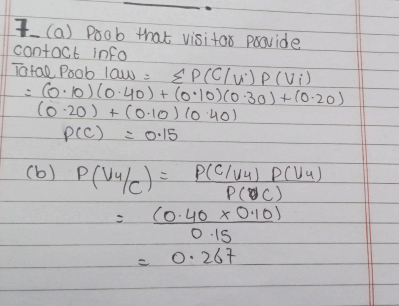 7- (a) Prob that visitors provide
contact info
Total Prob law = Σ P(C/Vi) P(Vi)
= (0.10)(0.40) + (0.10)(0.30) + (0.20)
(0.20) + (0.10)(0.40)
P(C) = 0.15
(b) P(V4/C) = P(C/V4) P(V4)
P(C)
= (0.40 × 0.10)
0.15
= 0.267